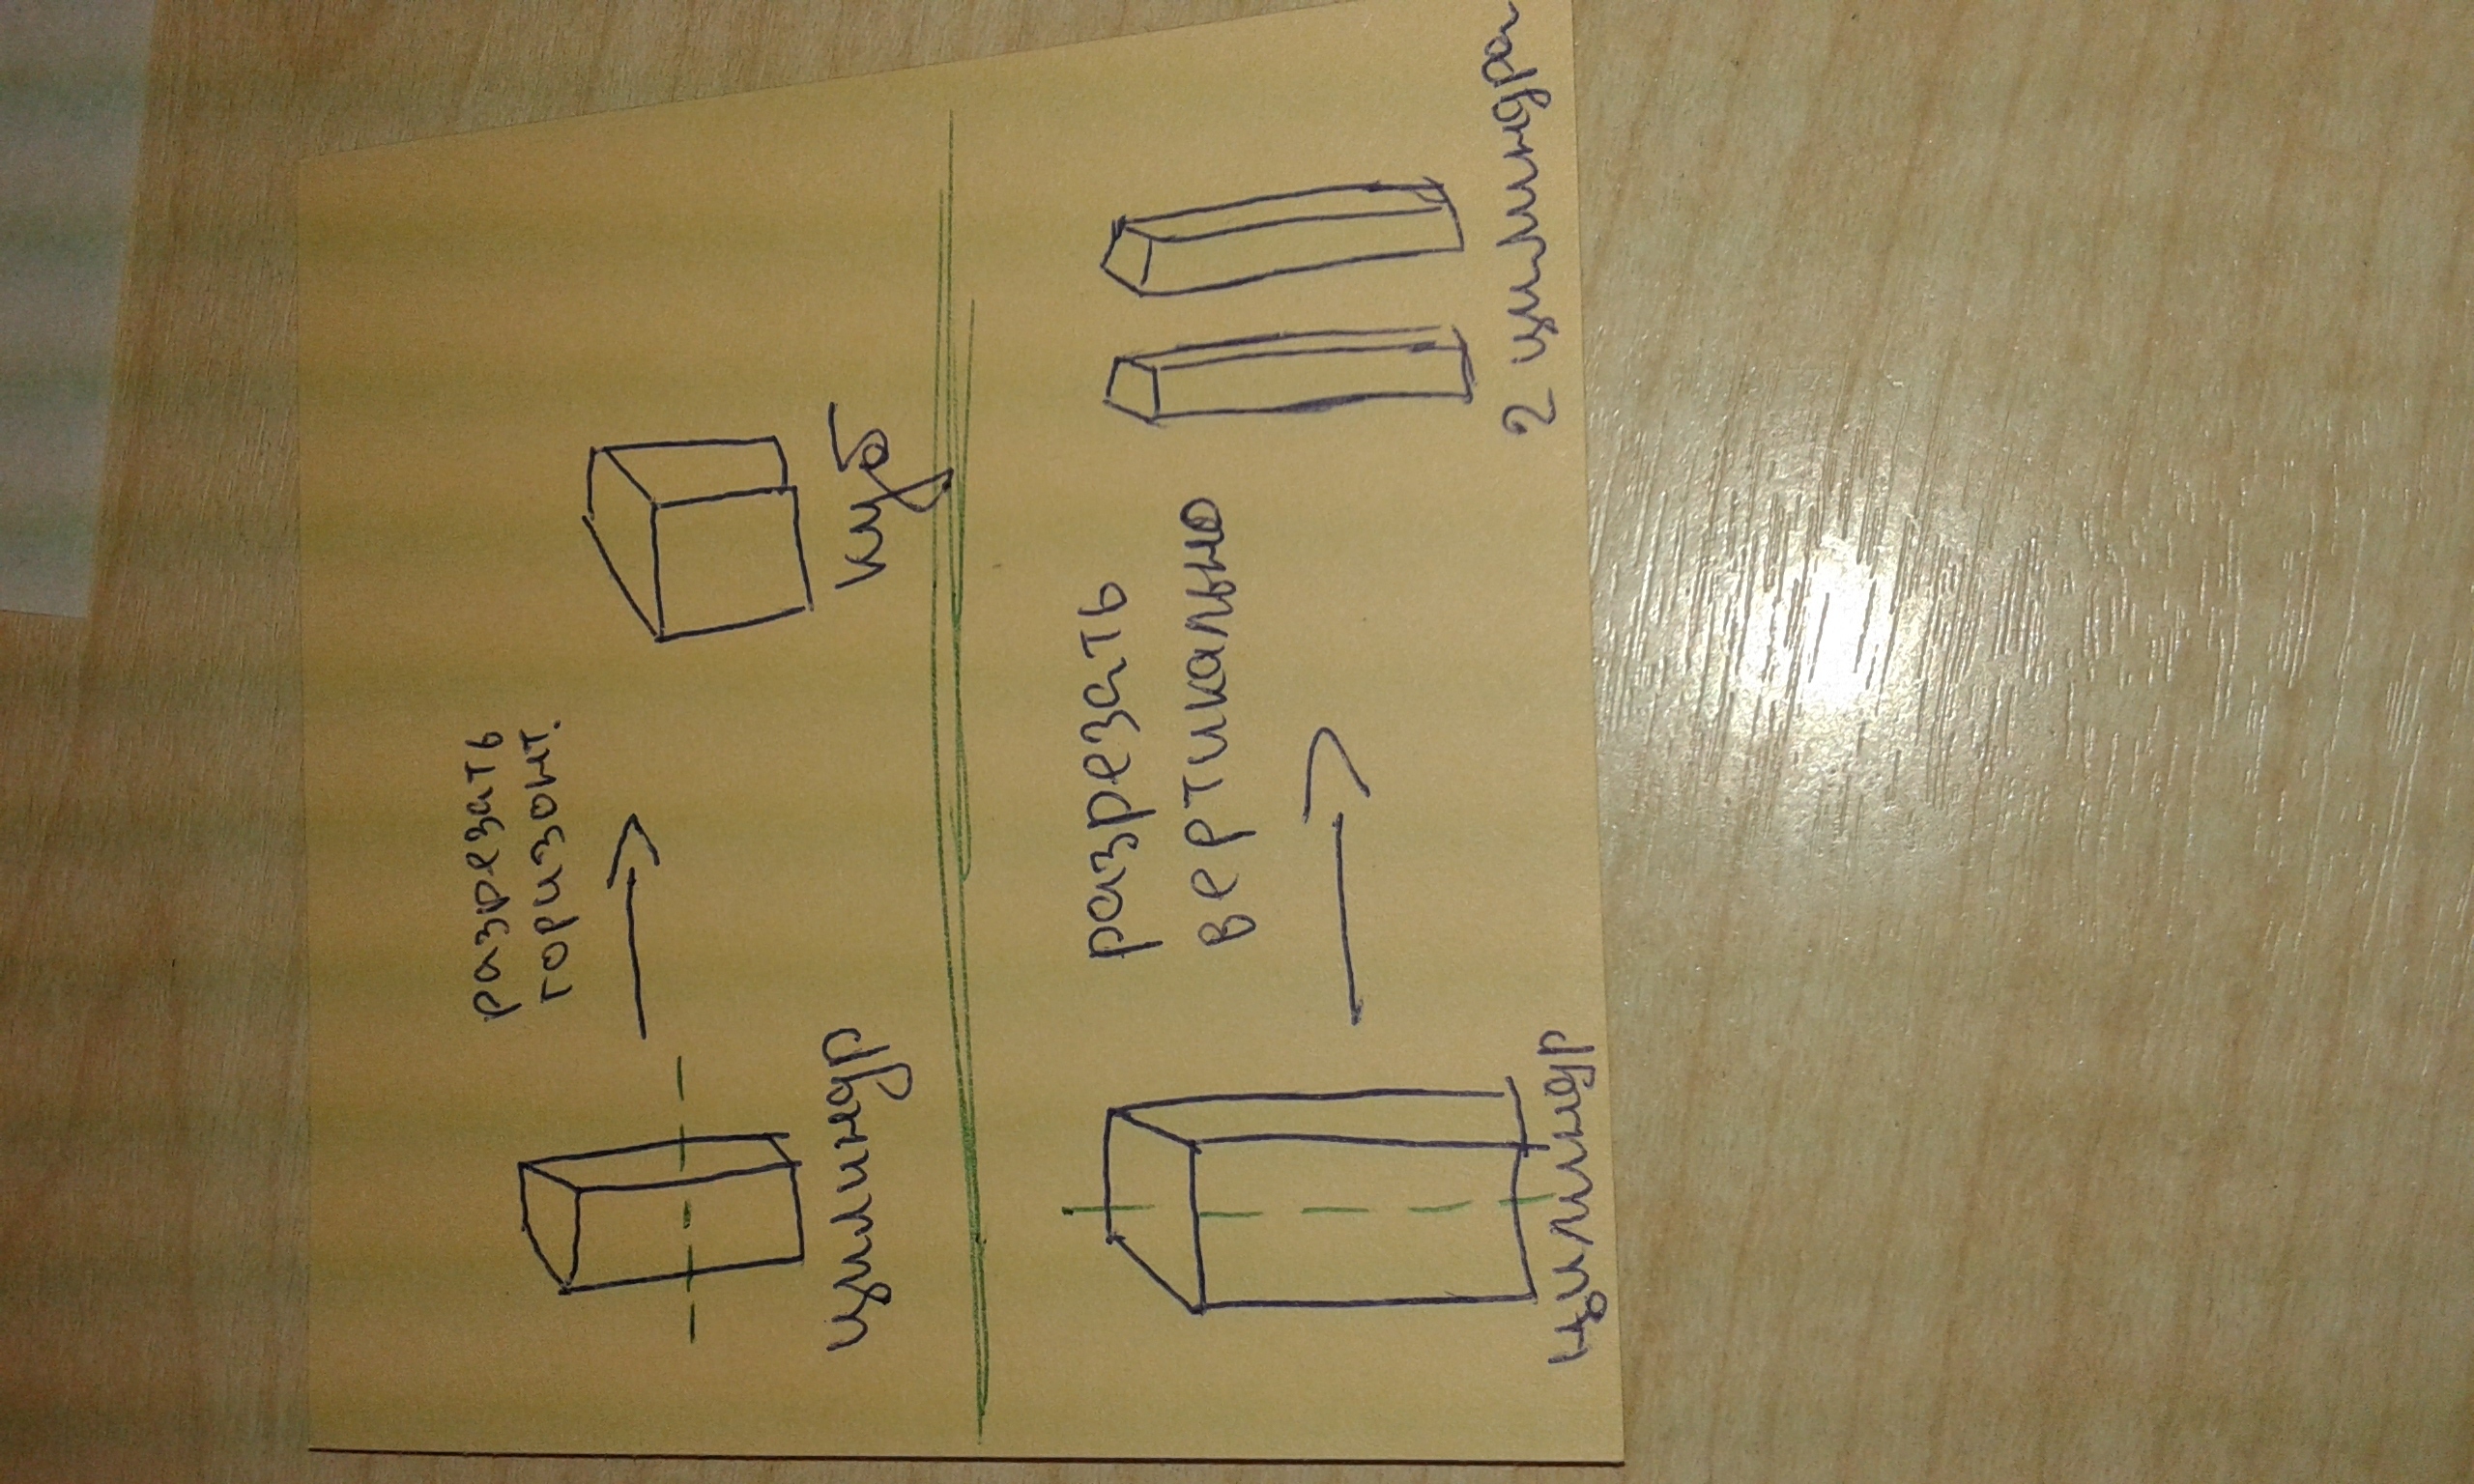 разрезать
горизонт.
цилиндр
куб
разрезать
вертикально
цилиндр
2 цилиндра